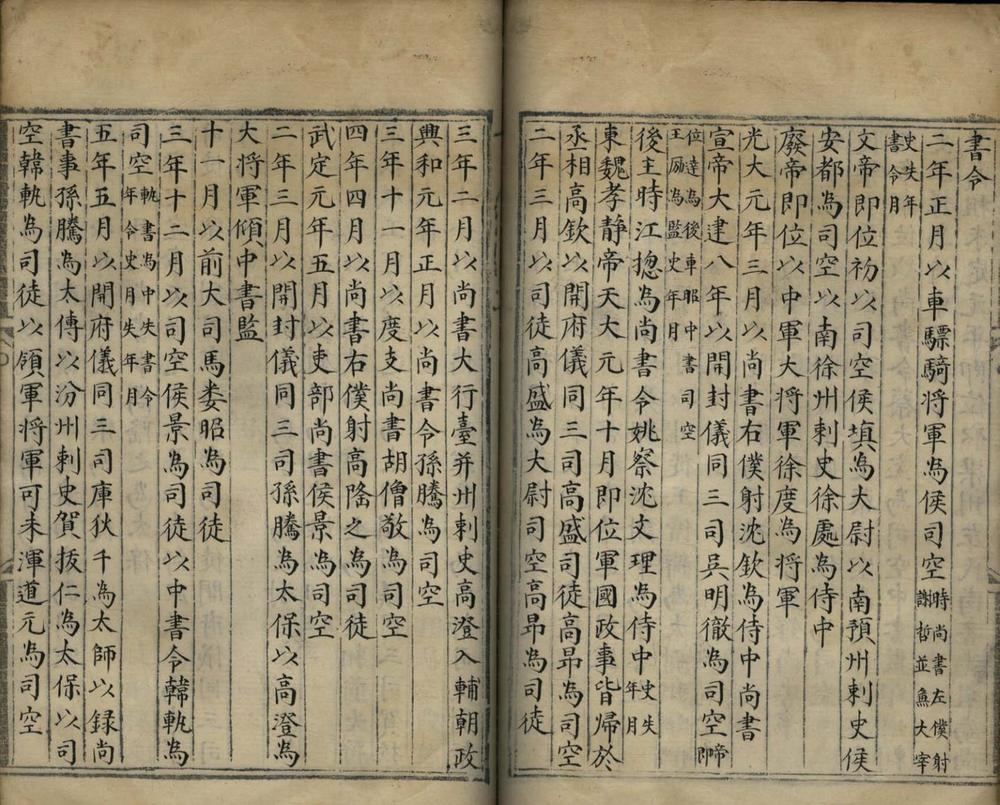 書令
二年正月以車驃騎将軍為侯司空時尚書左僕射謝哲並魚大宰
史失年書令月
文帝即位初以司空侯填為大尉以南預州刺史侯
安都為司空以南徐州刺史徐處為侍中
廢帝即位以中軍大将軍徐度為将軍
光大元年三月以尚書右僕射沈欽為侍中尚書
宣帝大建八年以開封儀同三司吳明徹為司空帝即
位達為後車昭中書司空王励為監史年月
後主時江揔為尚書令姚察沈文理為侍中史失年月
東魏孝静帝天大元年十月即位軍國政事皆帰於
丞相高欽以開府儀同三司高盛司徒高昂為司空
二年三月以司徒高盛為大尉司空高昂為司徒
三年二月以尚書大行臺并州刺史高澄入輔朝政
興和元年正月以尚書令孫騰為司空
三年十一月以度支尚書胡僧敬為司空
四年四月以尚書右僕射高隆之為司徒
武定元年五月以吏部尚書侯景為司空
二年三月以開封儀同三司孫騰為太保以高澄為
大将軍傾中書監
十一月以前大司馬娄昭為司徒
三年十二月以司空侯景為司徒以中書令韓軌為
司空軌書為中失書令年令史月失年月
五年五月以開府儀同三司庫狄千為太師以録尚
書事孫騰為太傅以汾州刺史賀抜仁為太保以司
空韓軌為司徒以領軍将軍可未渾道元為司空